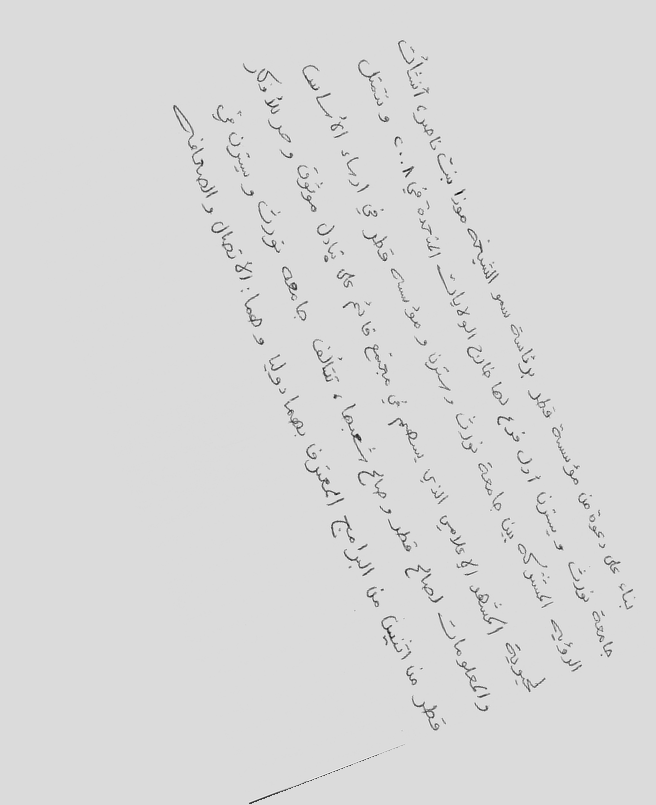 بناء على دعوة من مؤسسة قطر برئاسة سمو الشيخة موزا بنت ناصر، أنشأت
جامعة نورث ويسترن أول فرع لها خارج الولايات المتحدة في ٢٠٠٨. وتتمثل
الرؤيه المشتركه بين جامعة نورث وسترن ومؤسسه قطر في ارساء الأساس
لحيوية المشهد الإعلامي الذي يسهم في مجتمع قائم على تبادل موثوق وحر للأفكار
والمعلومات لصالح قطر وصالح شعبها، تتألف جامعه نورث ويسترن في
قطر من اثنين من البرامج المعترف بهما دوليا وهما: الاتصال والصحافه